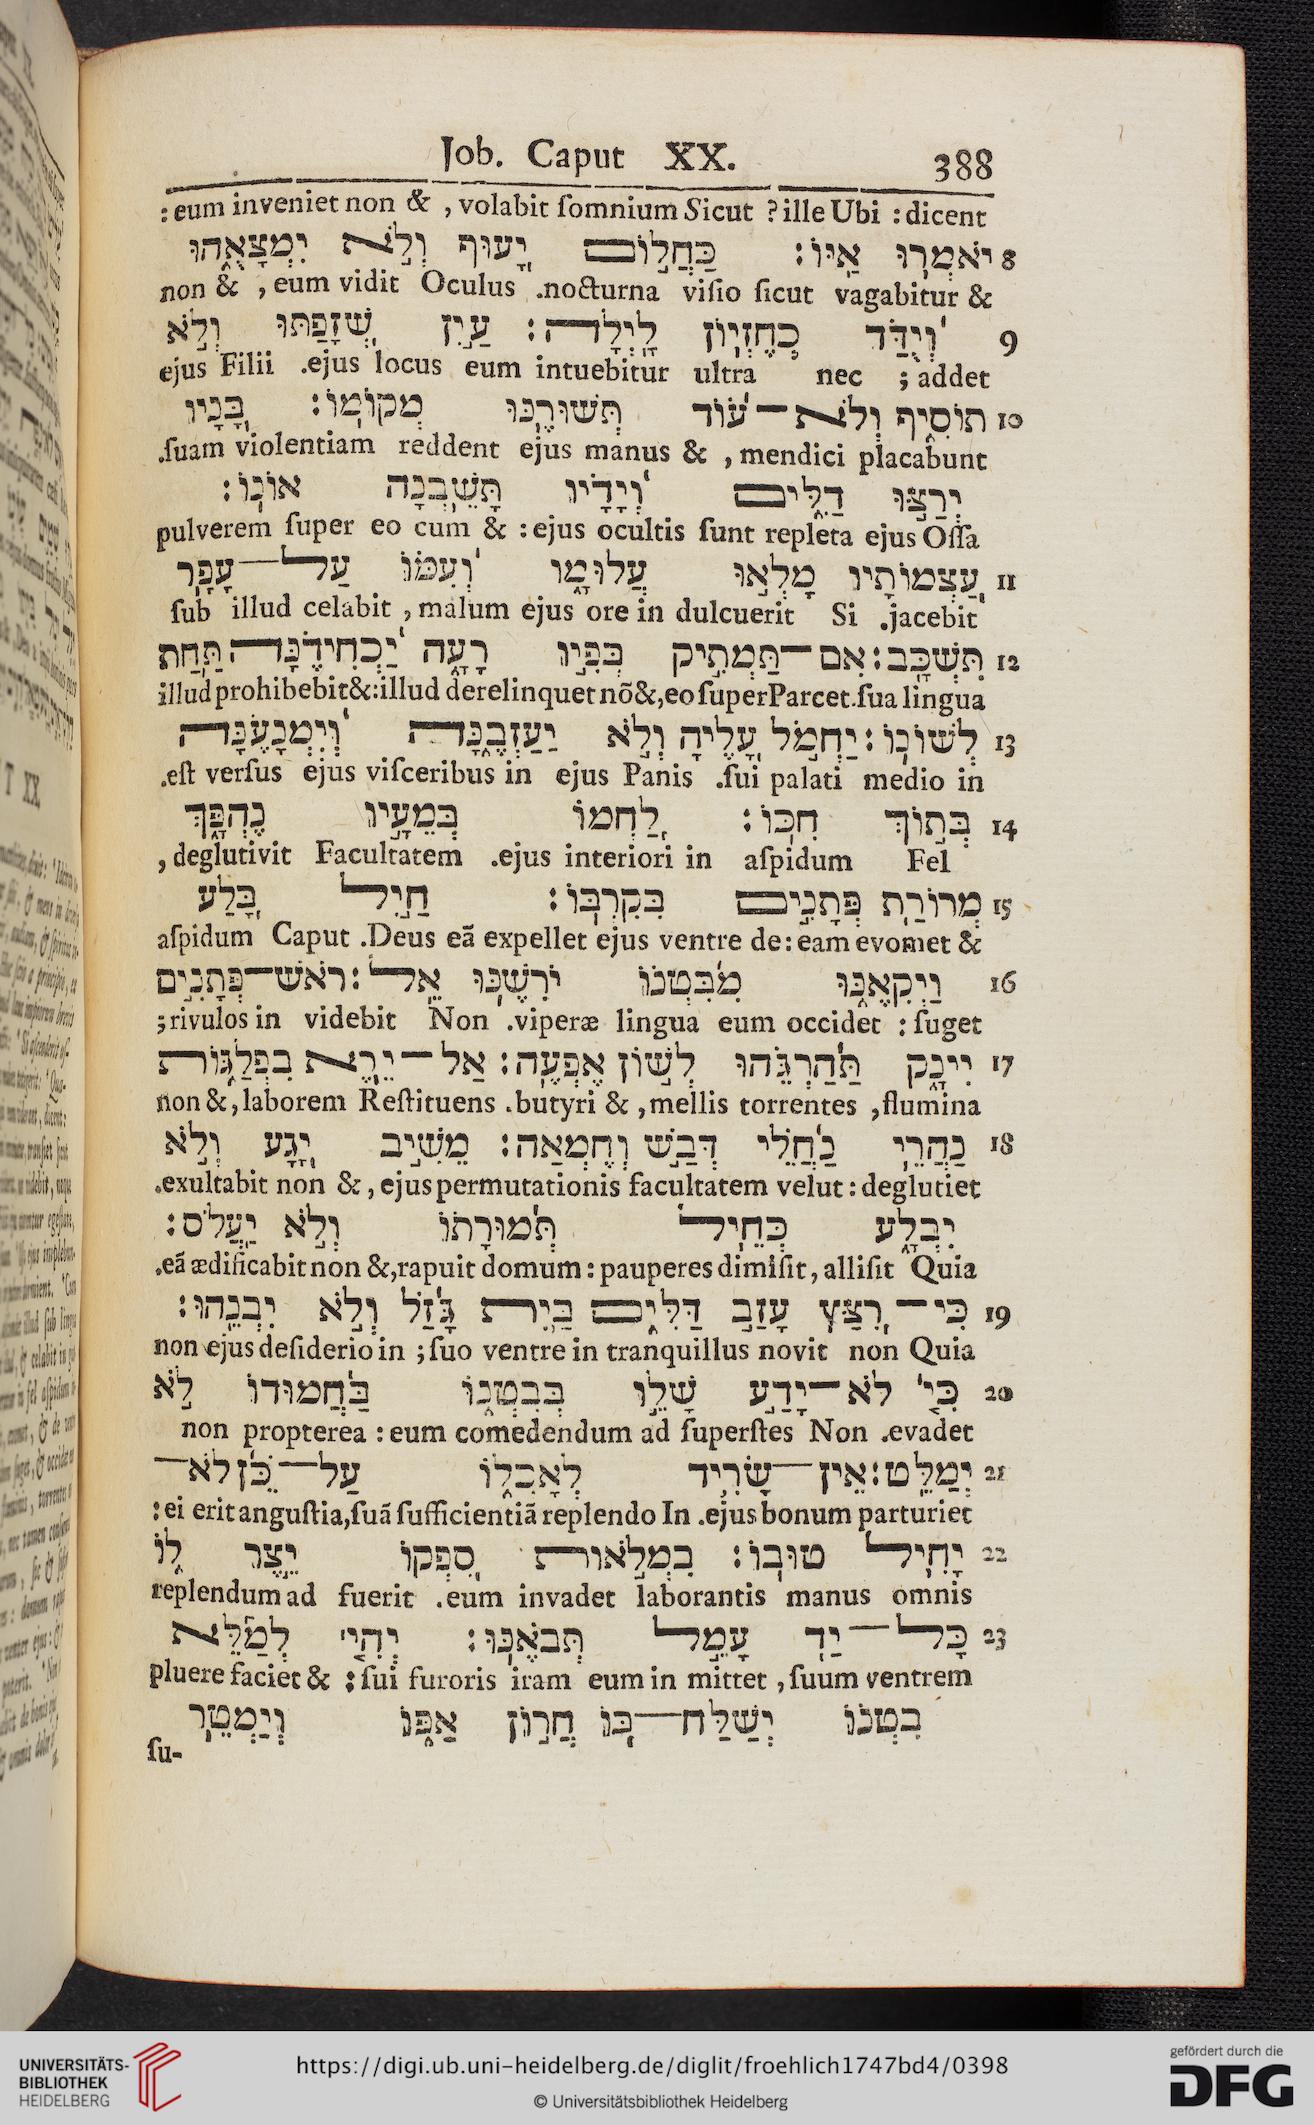 Job. Caput XX. 388
: eum inveniet non & , volabit ſomnium Sicut ? ille Ubi : dicent
יֹאמְרוּ אַיּוֹ׃ כַּחֲלוֹם יָעוּף וְלֹא יִמְצָאֻהוּ 8
non & , eum vidit Oculus .nocturna viſio ſicut vagabitur &
וְיֻדַּד כְּחֶזְיוֹן לָיְלָה׃ עַיִן שְׁזָפַתּוּ וְלֹא 9
ejus Filii .ejus locus eum intuebitur ultra nec ; addet
תוֹסִיף וְלֹא־עוֹד תְּשׁוּרֶנּוּ מְקוֹמוֹ׃ בָּנָיו 10
.ſuam violentiam reddent ejus manus & , mendici placabunt
יְרַצּוּ דַלִּים וְיָדָיו תָּשֵׁבְנָה אוֹנוֹ׃
pulverem ſuper eo cum & : ejus ocultis ſunt repleta ejus Oſſa
עַצְמוֹתָיו מָלְאוּ עֲלוּמָו וְעִמּוֹ עַל־עָפָר 11
ſub illud celabit , malum ejus ore in dulcuerit Si .jacebit
תִּשְׁכָּב׃ אִם־תַּמְתִיק בְּפִיו רָעָה יַכְחִידֶנָּה תַּחַת 12
illud prohibebit&:illud derelinquet nõ&,eo ſuper Parcet.ſua lingua
לְשׁוֹנוֹ׃ יַחְמֹל עָלֶיהָ וְלֹא יַעַזְבֶנָּה וְיִמְנָעֶנָּה 13
.eſt verſus ejus viſceribus in ejus Panis .ſui palati medio in
בְּתוֹךְ חִכּוֹ׃ לַחְמוֹ בְּמֵעָיו נֶהְפָּךְ 14
, deglutivit Facultatem .ejus interiori in aſpidum Fel
מְרוֹרַת פְּתָנִים בְּקִרְבּוֹ׃ חַיִל בָּלַע 15
aſpidum Caput .Deus eã expellet ejus ventre de : eam evomet &
וַיְקִאֶנּוּ מִבִּטְנוֹ יֹרִשֶׁנּוּ אֵל׃ רֹאשׁ־פְּתָנִים 16
; rivulos in videbit Non .viperæ lingua eum occidet : ſuget
יִינָק תַּהַרְגֵהוּ לְשׁוֹן אֶפְעֶה׃ אַל־יֵרֶא בִפְלַגּוֹת 17
non & , laborem Reſtituens .butyri & , mellis torrentes , flumina
נַהֲרֵי נַחֲלֵי דְּבַשׁ וְחֶמְאַה׃ מֵשִׁיב יָגָע וְלֹא 18
.exultabit non & , ejus permutationis facultatem velut : deglutiet
יִבְלָע כְּחֵיל תְּמוּרָתוֹ וְלֹא יַעֲלֹס׃
.eã ædificabit non &,rapuit domum : pauperes dimiſit , alliſit Quia
כִּי־רִצַּץ עָזַב דַּלִּים בַּיִת גָּזַל וְלֹא יִבְנֵהוּ׃ 19
non ejus deſiderio in ; ſuo ventre in tranquillus novit non Quia
כִּי לֹא־יָדַע שָׁלֵו בְּבִטְנוֹ בַּחֲמוּדוֹ לֹא 20
non propterea : eum comedendum ad ſuperſtes Non .evadet
יְמַלֵּט׃ אֵין־שָׂרִיד לְאָכְלוֹ עַל־כֵּן לֹא־ 21
: ei erit anguſtia,ſuã ſufficientiã replendo In .ejus bonum parturiet
יָחִיל טוּבוֹ׃ בִּמְלֹאות סִפְקוֹ יֵצֶר לוֹ 22
replendum ad fuerit .eum invadet laborantis manus omnis
כָּל־יַד עָמֵל תְּבֹאֶנּוּ׃ יְהִי לְמַלֵּא 23
pluere faciet & ; ſui furoris iram eum in mittet , ſuum ventrem
בִטְנוֹ יְשַׁלַּח־בּוֹ חֲרוֹן אַפּוֹ וְיַמְטֵר
ſu-
UNIVERSITÄTS-
BIBLIOTHEK
HEIDELBERG
https://digi.ub.uni-heidelberg.de/diglit/froehlich1747bd4/0398
© Universitätsbibliothek Heidelberg
gefördert durch die
DFG